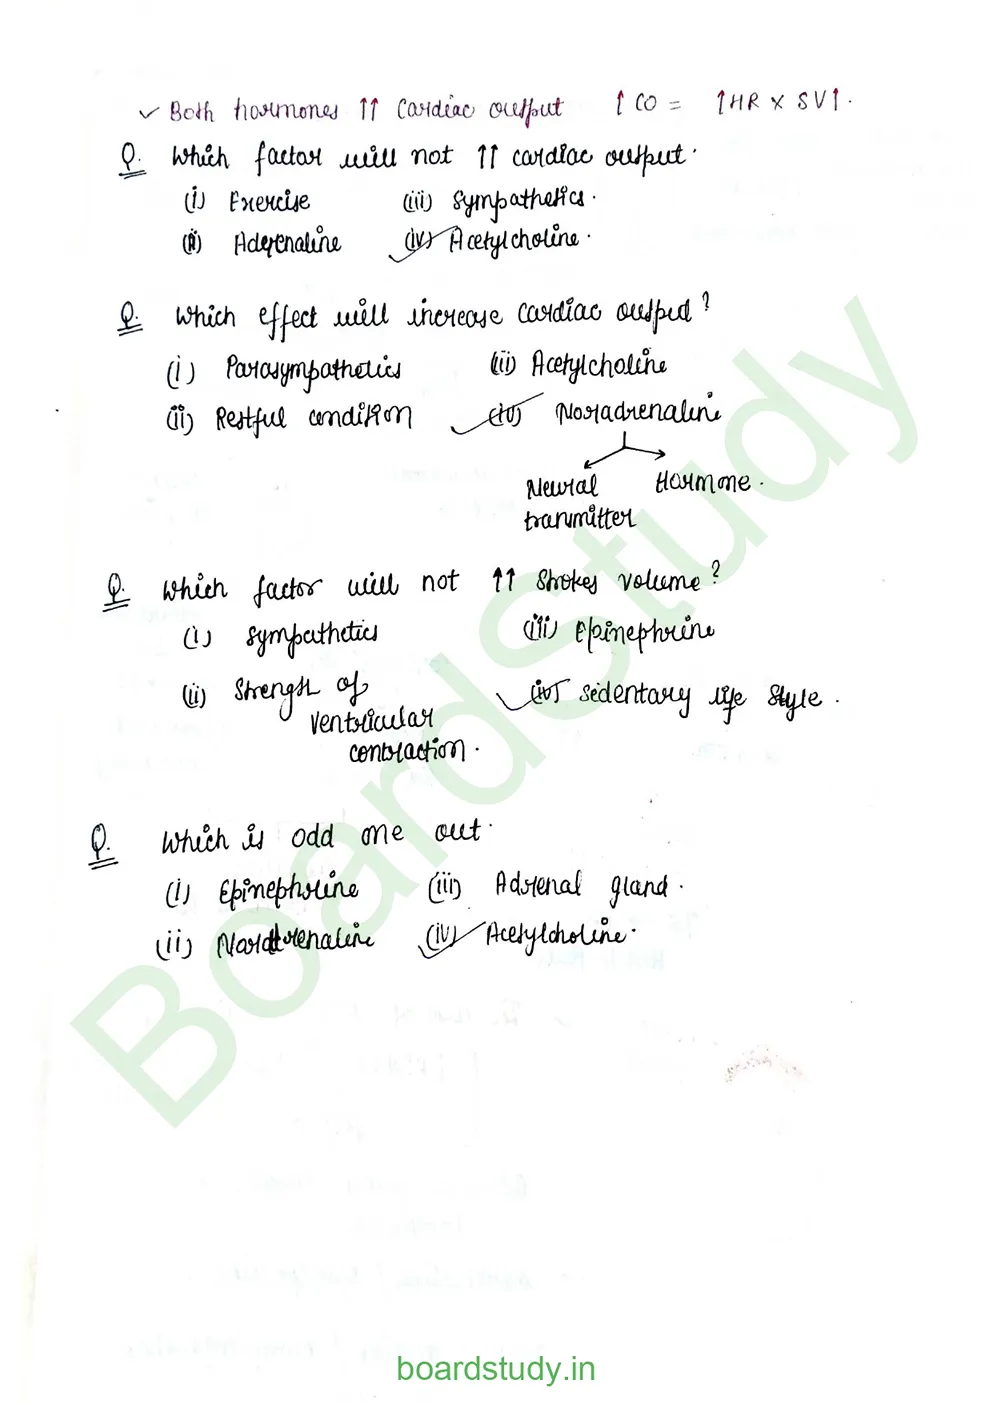 ✓ Both hormones ↑↑ Cardiac output ↑ CO = ↑HR × SV↑.
Q. Which factor will not ↑↑ cardiac output.
(i) Exercise (iii) Sympathetics.
(ii) Adrenaline (iv) Acetylcholine.
Q. Which effect will increase cardiac outpud?
(i) Parasympathetics (iii) Acetylcholine
(ii) Restful condition (iv) Noradrenaline
Neural Hormone.
tranmitter
Q. Which factor will not ↑↑ Strokes volume?
(i) Sympathetics (iii) Epinephrine
(ii) Strength of (iv) Sedentary life style.
Ventricular
contraction.
Q. Which is odd one out.
(i) Epinephrine (iii) Adrenal gland.
(ii) Noradrenaline (iv) Acetylcholine.
BoardStudy
boardstudy.in